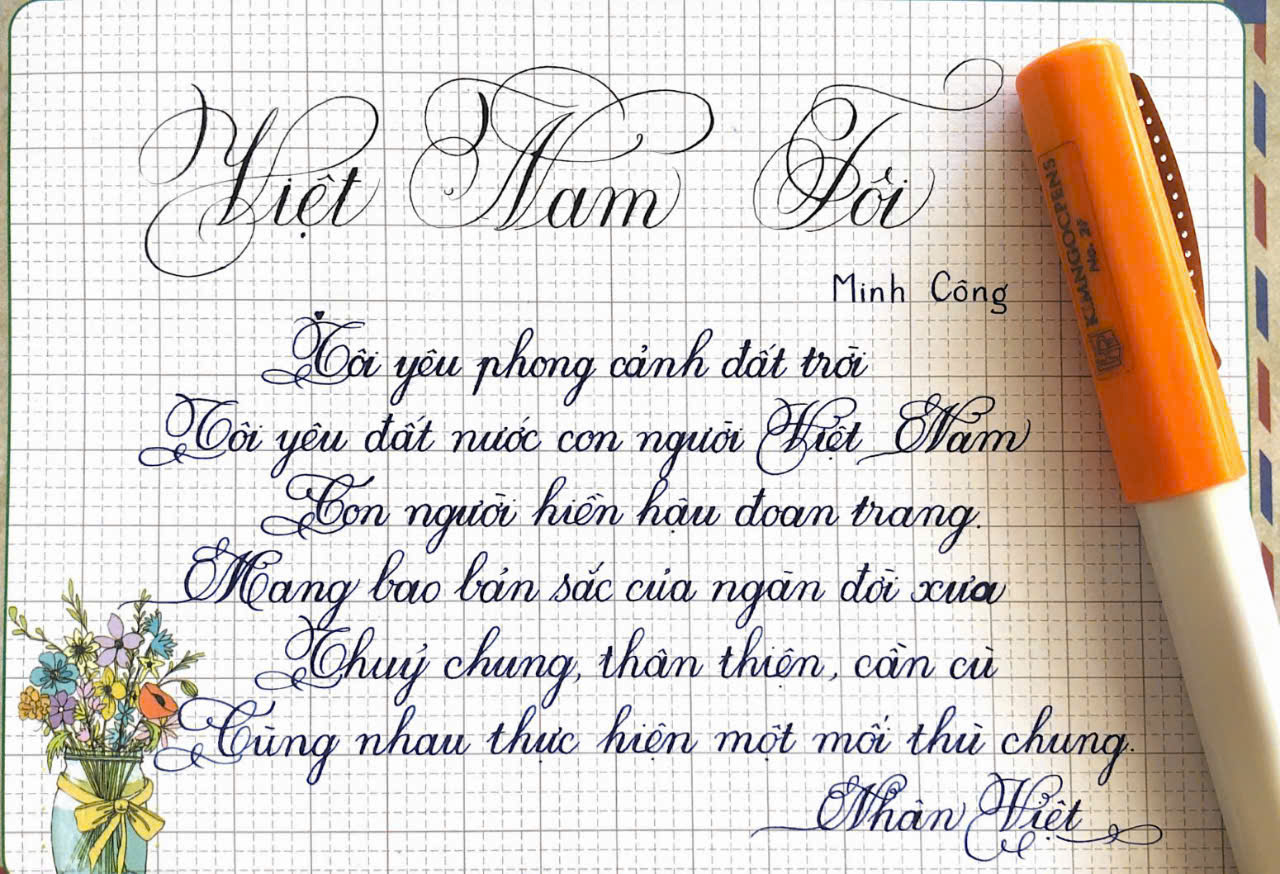 Việt Nam Tôi
Minh Công
Tôi yêu phong cảnh đất trời
Tôi yêu đất nước con người Việt Nam
Con người hiền hậu đoan trang.
Mang bao bản sắc của ngàn đời xưa
Thuỷ chung, thân thiện, cần cù
Cùng nhau thực hiện một mối thù chung.
Nhân Việt
KIMNGOCPENS
No. 25